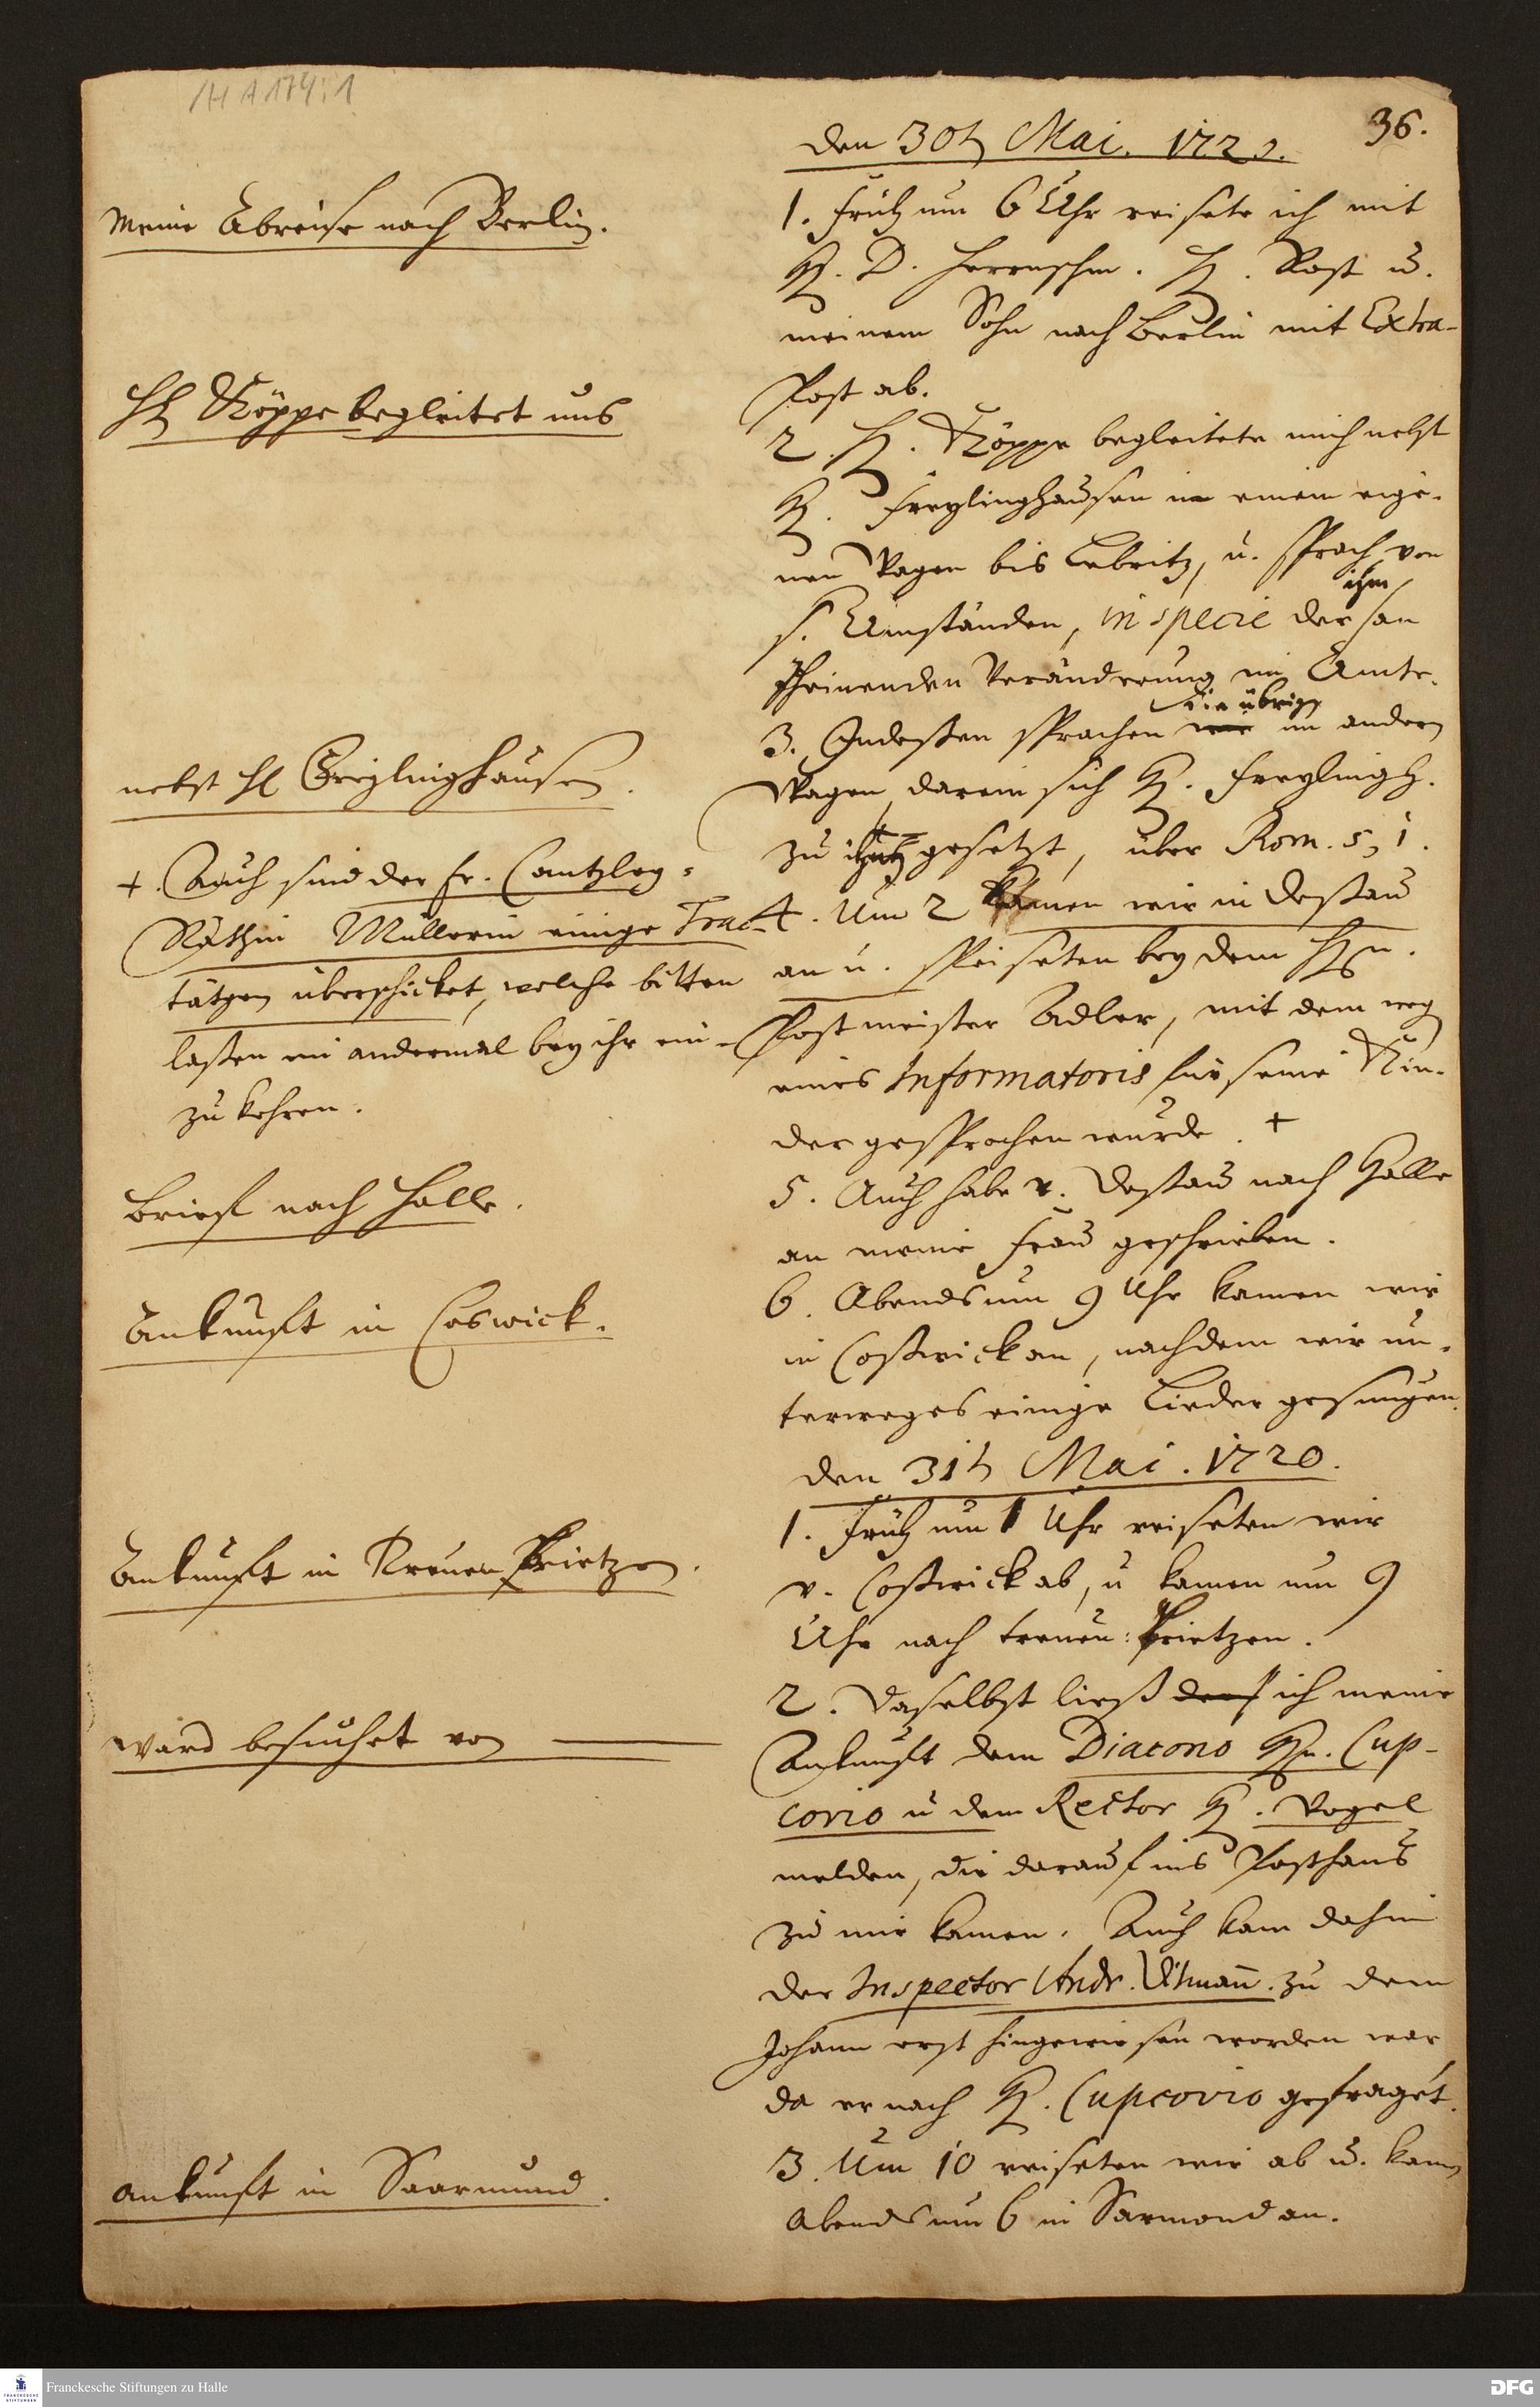 HA 174:1
36.
den 30t Mai. 1720.
Meine Abreise nach Berlin.
1. Früh um 6 Uhr reisete ich mit
H. D. Herrnschm. H. Rost u.
meinem Sohn nach Berlin mit Extra-
Post ab.
H Köppe begleitet uns
2. H. Köppe begleitete mich nebst
H. Freylinghausen in einem eige-
nen Wagen bis Lebritz, u. sprach von
s. Umständen, in specie der ihm
scheinenden Veränderung im Amte.
3. Indeßen sprachen wir die übrige im andern
nebst H Freylinghausen.
Wagen, darein sich H. Freylingh.
zu gesetzt, über Rom. 5, 1.
4. Um 2 kamen wir in Deßau
an u. speiseten bey dem Hn.
Postmeister Adler, mit dem weg
eines Informatoris für seine Kin-
der gesprochen wurde. +
+. Auch sind der Fr. Cantzley-
Räthin Müllerin einige Trac-
tätgen überschicket, welche bitten
laßen ein andermal bey ihr ein-
zukehren.
Brief nach Halle.
5. Auch habe v. Deßau nach Halle
an meine Frau geschrieben.
Ankunft in Coswick.
6. Abends um 9 Uhr kamen wir
in Coßwick an, nachdem wir un-
terweges einige Lieder gesungen.
den 31t Mai. 1720.
1. Früh um 1 Uhr reiseten wir
Ankunft in Treuen Prietzen.
v. Coßwick ab, u kamen um 9
Uhr nach Treuen-Prietzen.
2. Daselbst ließ ich meine
ward besuchet von
Ankunft dem Diacono Hn. Cup-
covio u dem Rector H. Vogel
melden, die darauf ins Posthaus
zu mir kamen. Auch kam dahin
der Inspector Andr. Utmañ. zu dem
Johann erst hingewiesen worden war
da er nach H. Cupcovio gefraget.
Ankunft in Saarmund.
3. Um 10 reiseten wir ab u. kamen
Abends um 6 in Sarmond an.
Franckesche Stiftungen zu Halle
DFG